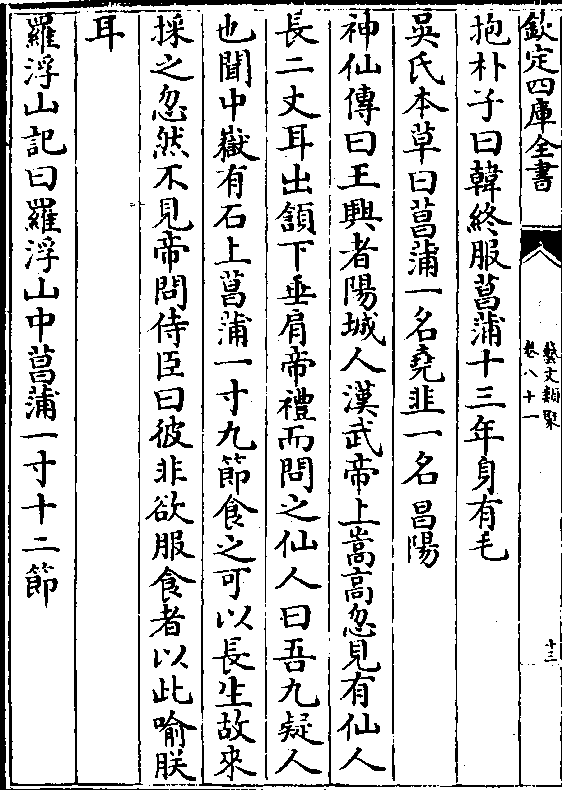 欽定四庫全書
藝文類聚
卷八十一
十三
抱朴子曰韓終服菖蒲十三年身有毛
吳氏本草曰菖蒲一名堯韭一名昌陽
神仙傳曰王興者陽城人漢武帝上嵩高忽見有仙人
長二丈耳出頷下垂肩帝禮而問之仙人曰吾九疑人
也聞中嶽有石上菖蒲一寸九節食之可以長生故來
採之忽然不見帝問侍臣曰彼非欲服食者以此喻朕
耳
羅浮山記曰羅浮山中菖蒲一寸十二節